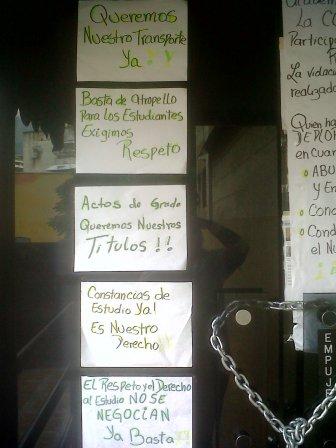 Queremos
Nuestro Transporte
Ya !!
Basta de Atropello
Para los Estudiantes
Exigimos
Respeto
Actos de Grado
Queremos Nuestros
Titulos !!
Constancias de
Estudio Ya!
Es Nuestro
Derecho
El Respeto y el Derecho
al Estudio NO SE
NEGOCIAN
Ya Basta
La
Participa
La
realizado
Quien ha
en
ABU
y
Conc
Cond
el N
EMPUJE